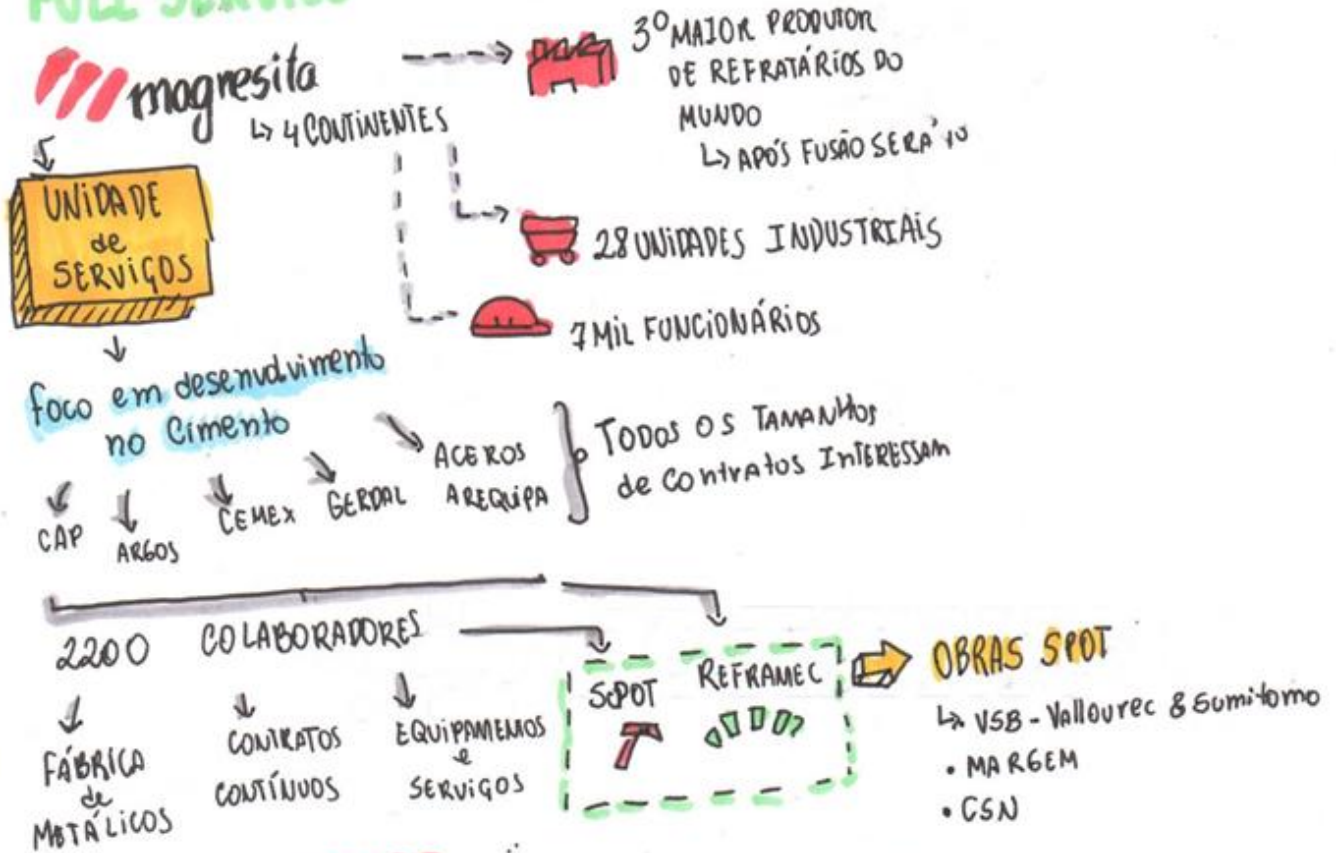 FULL SERVICE
magnesita
↳ 4 CONTINENTES
3º MAIOR PRODUTOR
DE REFRATÁRIOS DO
MUNDO
↳ APÓS FUSÃO SERÁ
28 UNIDADES INDUSTRIAIS
7 MIL FUNCIONÁRIOS
UNIDADE
de
SERVIÇOS
foco em desenvolvimento
no Cimento
CAP
ARGOS
CEMEX
GERDAL
ACEROS
AREQUIPA
TODOS OS TAMANHOS
de contratos INTERESSAM
2200 COLABORADORES
FÁBRICA
de
METÁLICOS
CONTRATOS
CONTÍNUOS
EQUIPAMENTOS
e
SERVIÇOS
SPOT
REFRAMEC
OBRAS SPOT
↳ VSB - Vallourec & Sumitomo
• MARGEM
• CSN